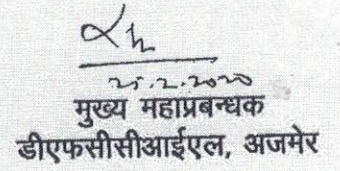 25.2.2020
मुख्य महाप्रबन्धक
डीएफसीसीआईएल, अजमेर